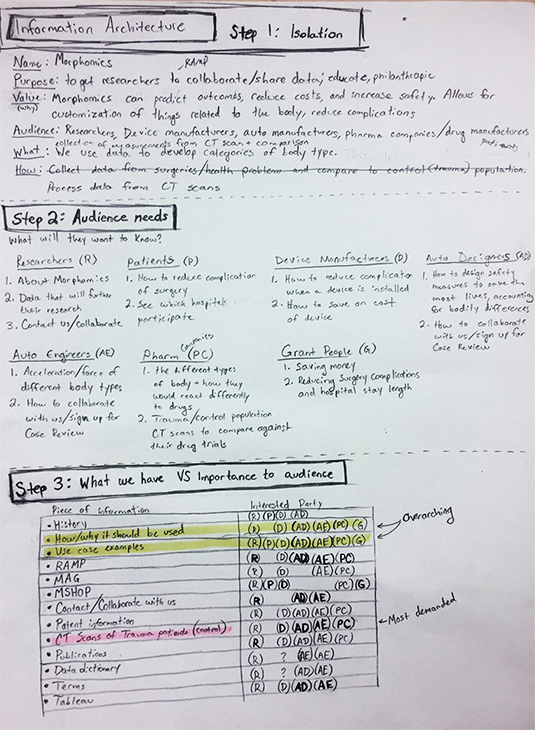 Information Architecture
Step 1: Isolation
Name: Morphomics
RAMP
Purpose: to get researchers to collaborate/share data; educate, philanthropic
Value: Morphomics can predict outcomes, reduce costs, and increase safety. Allows for
(why)
customization of things related to the body, reduce complications
Audience: Researchers, Device manufacturers, auto manufacturers, pharma companies/drug manufacturers
collection of measurements from CT scan + comparison
What: We use data to develop categories of body type.
How: Collect data from surgeries/health problems and compare to control (trauma) population.
Process data from CT scans
Step 2: Audience needs
What will they want to know?
Researchers (R)
1. About Morphomics
2. Data that will further
their research
3. Contact us/Collaborate
Patients (P)
1. How to reduce complication
of surgery
2. See which hospitals
participate
Device Manufacturers (D)
1. How to reduce complication
when a device is installed
2. How to save on cost
of device
Auto Designers (AD)
1. How to design safety
measures to save the
most lives, accounting
for bodily differences
2. How to collaborate
with us/sign up for
Case Review
Auto Engineers (AE)
1. Acceleration/force of
different body types
2. How to collaborate
with us/sign up for
Case Review
Companies
Pharm (PC)
1. the different types
of body + how they
would react differently
to drugs
2. Trauma/control population
CT scans to compare against
their drug trials
Grant People (G)
1. Saving money
2. Reducing Surgery complications
and hospital stay length
Step 3: What we have VS Importance to audience
Piece of information Interested Party
• History (R) (P) (D) (AD)
• How/why it should be used (R) (D) (AD) (AE) (PC) (G)
Overarching
• Use case examples (R) (P) (D) (AD) (AE) (PC) (G)
• RAMP (R) (D) (AD) (AE) (PC)
• MAG (D) (AE) (PC)
• MSHOP (R) (P) (D) (PC) (G)
• Contact/Collaborate with us (R) (AD) (AE)
• Patent information (R) (D) (AD) (AE) (PC)
• CT Scans of Trauma patients (control) (R) (D) (AD) (AE) (PC)
Most demanded
• Publications (R) (D) (AD) (AE) (PC)
• Data dictionary (R) ? (AE) (AE)
• Terms (R) ? (AD) (AE)
• Tableau (R) (D) (AD) (AE)